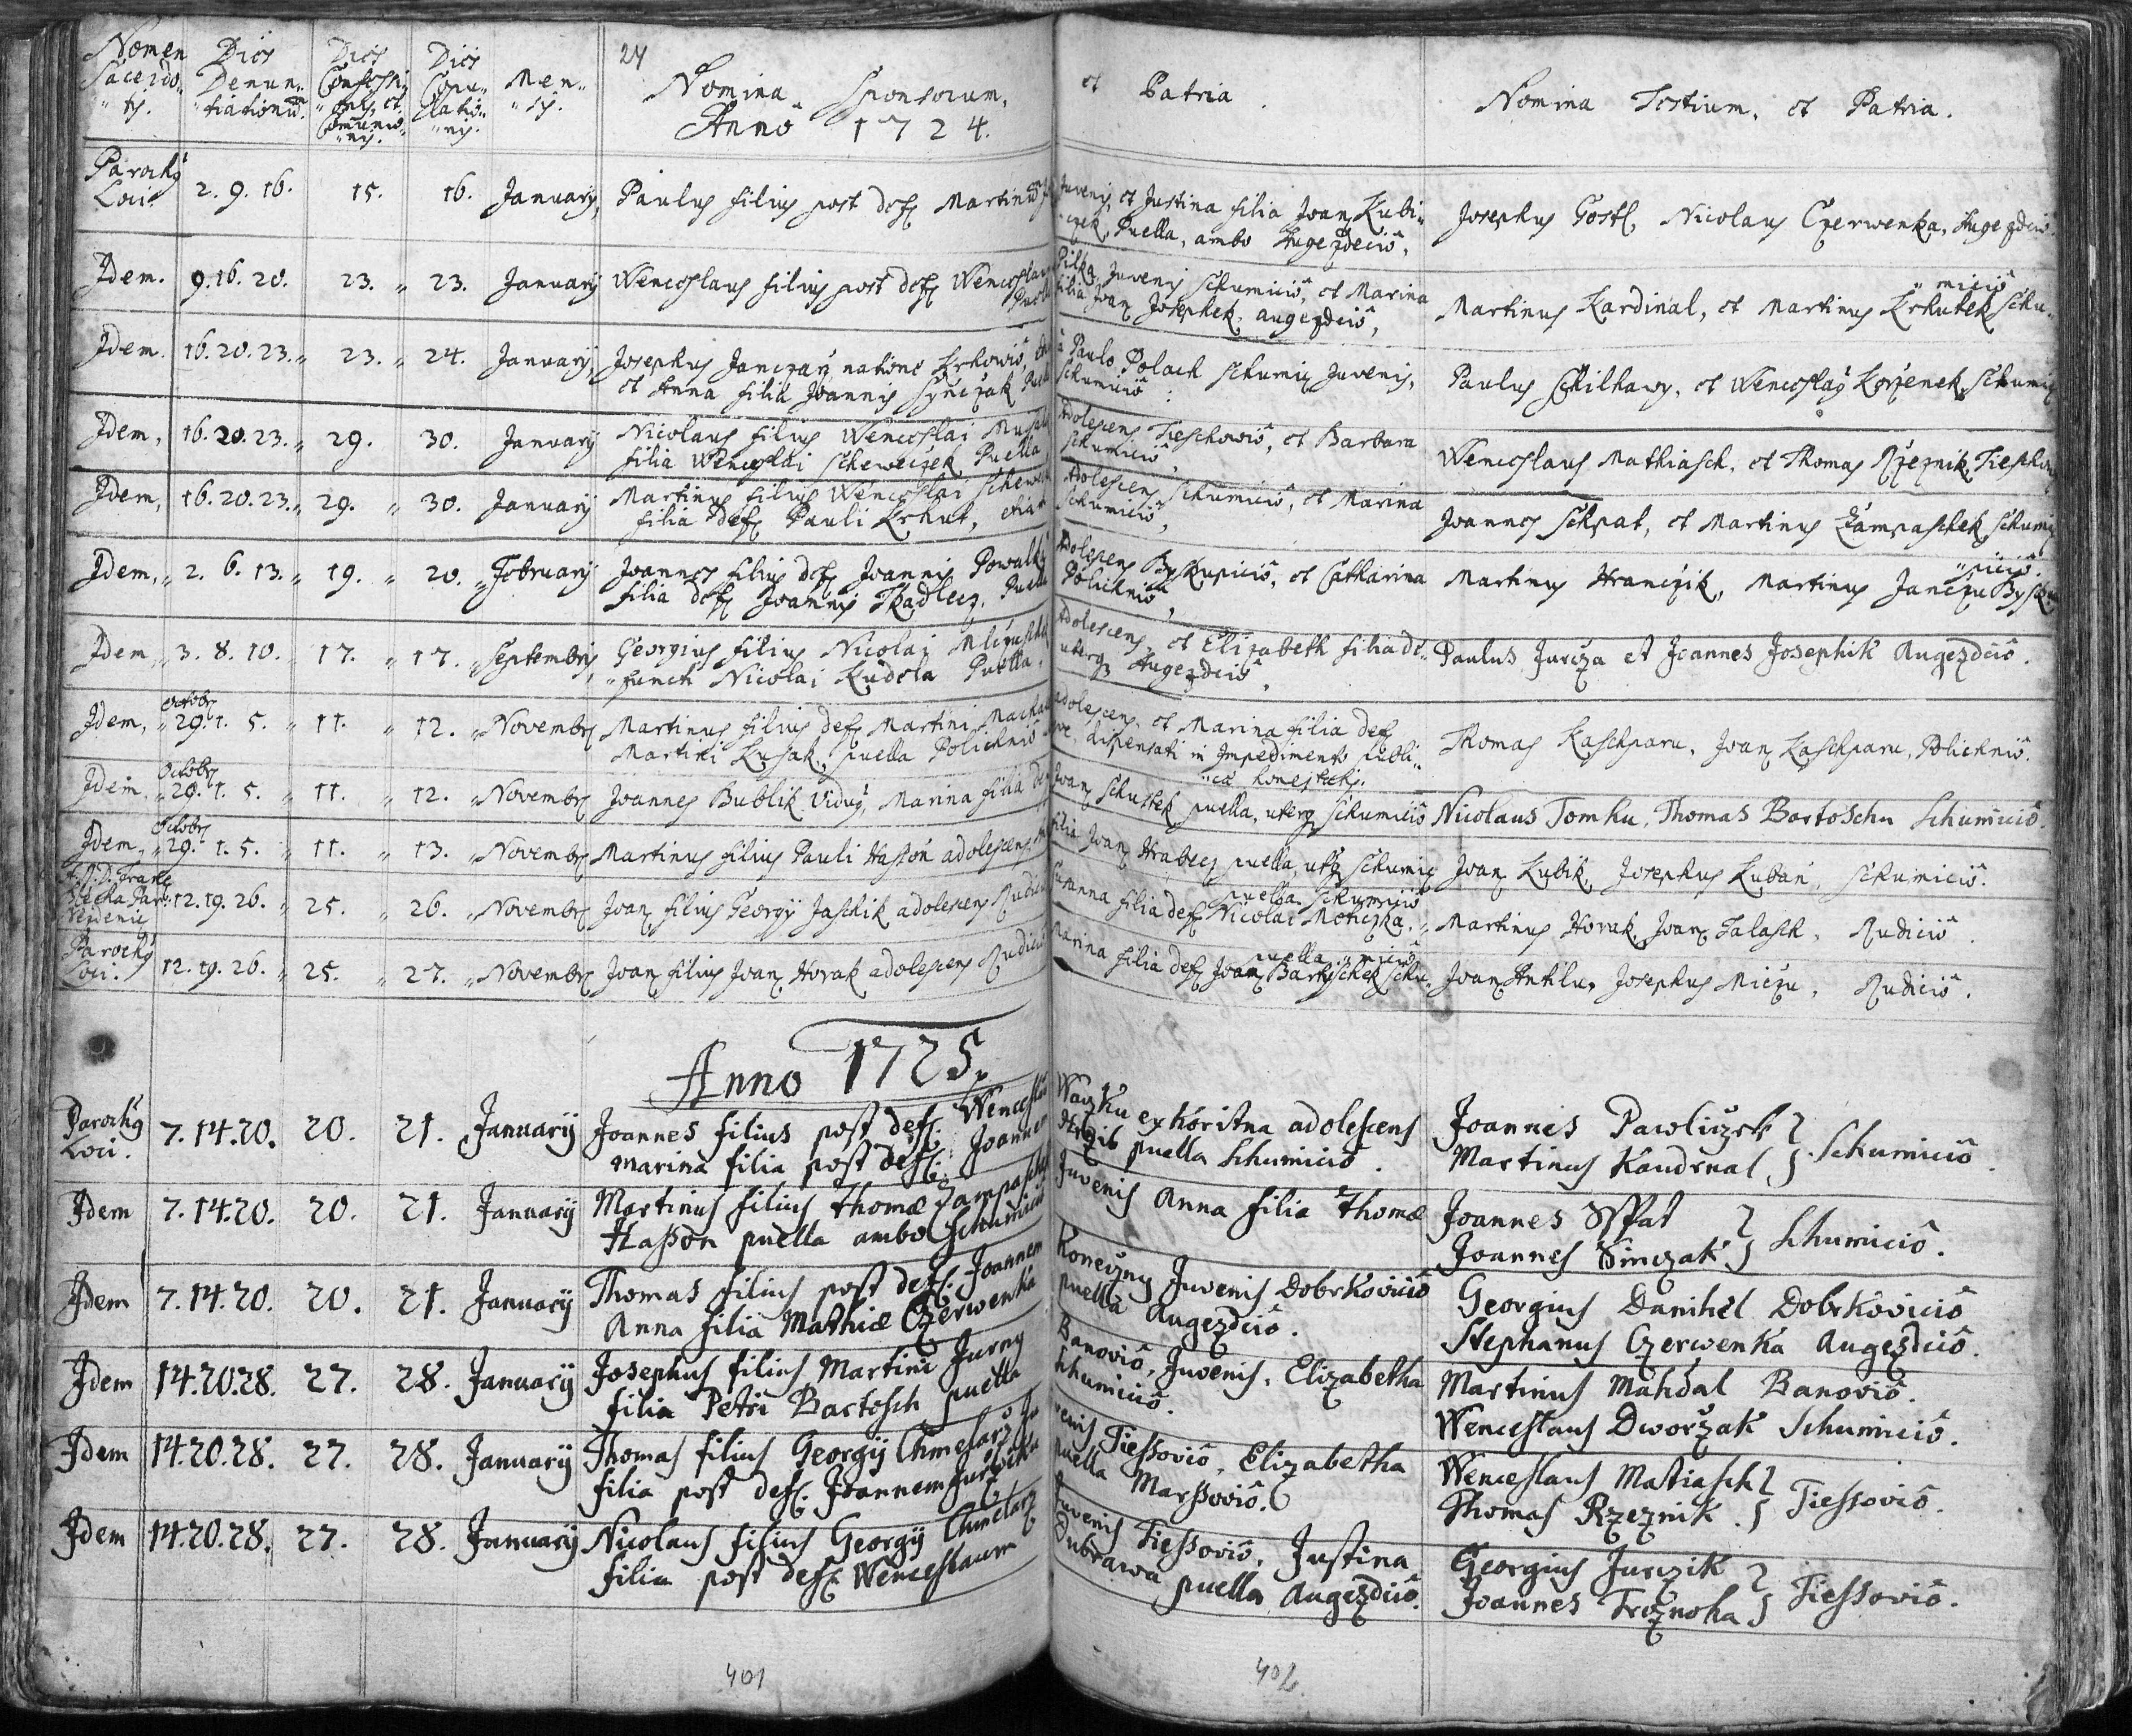 Nomen Sacerdo„ „tis.
Dies Denun„ „tiationum.
Dies Confessi„ „onis, et Comunio„ „nis.
Dies Copu„ „latio„ „nis.
Men„ „sis.
24
Nomina Sponsorum, et Patria.
Anno 1724.
Nomina Testium, et Patria.
Parochus Loci. 2. 9. 16. 15. 16. January, Paulus filius post def. Martinum
Juvenis, et Justina filia Joan. Kubi„
„czek, Puella, ambo Augezdeciô,
Josephus Gostl, Nicolaus Czerwenka, Augezdeciô.
Idem. 9. 16. 20. 23. „ 23. January Wenceslaus filius post def. Wenceslaum
Pilka, Juvenis Schumiciô, et Marina
filia Joan. Josephek, augezdciô,
Martinus Kardinal, et Martinus Krhutek Schu„
„miciô
Idem. 16. 20. 23. „ 23. „ 24. January, Josephus Janczarz natione Krhowiô,
et Anna filia Joannis Synczak
à Paulo Polach Schumic. Juvenis,
Schumiciô:
Paulus Schilhawy, et Wenceslaus Korzenek, Schumic.
Idem, 16. 20. 23. „ 29. 30. January Nicolaus filius Wenceslai
filia Wenceslai Scheweczek Puella
Adolescens Tieschowiô, et Barbara
Schumiciô,
Wenceslaus Mathiasch, et Thomas Rzeznik,
Idem, 16. 20. 23. „ 29. „ 30. January Martinus filius Wenceslai
filia def. Pauli Krhut,
Adolescens Schumiciô, et Marina
Schumiciô,
Joannes Schpat, et Martinus Zámpaschek, Schumic.
Idem, „ 2. 6. 13. „ 19. „ 20. „ February Joannes filius def. Joannis
filia def. Joannis Tkadlecz, Puella
Adolescens Byskupiciô, et Catharina
Polichniô,
Martinus Hranczik, Martinus Janczu Bysku„
„piciô.
Idem, „ 3. 8. 10. „ 17. „ 17. „ Septembris, Georgius filius Nicolai
„functi Nicolai Kudela Puella,
Adolescens, et Elizabeth filia de„
uterq. Augezdciô,
Paulus Jurcza et Joannes Josephik Augezdciô.
Idem, „ Octobr. 29. 1. 5. „ 11. „ 12. „ Novembr. Martinus filius def. Martini
Martini Kusak, puella Polichniô
adolescens, et Marina filia def.
dispensati in Impedimento publi„
„cae honestatis.
Thomas Kaschparu, Joan. Kaschparu, Polichniô.
Idem, „ Octobr. 29. 1. 5. „ 11. „ 12. „ Novembr. Joannes Bublik Viduus, Marina filia def.
Joan. Schustek puella, uterq. Schumiciô
Nicolaus Tomku, Thomas Bartoschu Schumiciô.
Idem, „ Octobr. 29. 1. 5. „ 11. „ 13. „ Novembr. Martinus filius Pauli Hasson adolescens,
filia Joan. Hrabecz puella, utq. Schumic.
Joan. Kubik, Josephus Kuban, Schumiciô.
A.R.D. Franc. 12. 19. 26. „ 25. „ 26. „ Novembr. Joan. filius Georgij Jaschik adolescens Rudiciô
Susanna filia def. Nicolai Moticzka,
puella Schumiciô
Martinus Horak, Joan. Talasch, Rudiciô.
Parochus Loci. 12. 19. 26. „ 25. „ 27. „ Novembr. Joan. filius Joan. Horak adolescens Rudiciô
Marina filia def. Joan. Bartischek Schu„
puella „miciô
Joan. Anthlu, Josephus Miczu, Rudiciô.
Anno 1725.
Parochus Loci. 7. 14. 20. 20. 21. Januarij Joannes filius post def. Wenceslaum
marina filia post def. Joannem
Waczku ex Koritna adolescens
puella Schumiciô.
Joannes Pawliczek
Martinus Kandrnal } Schumiciô.
Idem 7. 14. 20. 20. 21. Januarij Martinus filius thomae Zampaschek
Hasson puella ambo Schumiciô
Juvenis Anna filia Thomae
Joannes Sspat
Joannes Sinczak } Schumiciô.
Idem 7. 14. 20. 20. 21. Januarij Thomas filius post def. Joannem
Anna filia Mathiae Czerwenka
Koneczny Juvenis Dobrkoviciô
puella Augezdciô.
Georgius Danihel Dobrkoviciô
Stephanus Czerwenka Augezdciô.
Idem 14. 20. 28. 27. 28. Januarij Josephus filius Martini Jurny
filia Petri Bartosch puella
Banoviô, Juvenis, Elizabetha
Schumiciô.
Martinus Mahdal Banoviô.
Wenceslaus Dworzak Schumiciô.
Idem 14. 20. 28. 27. 28. Januarij Thomas filius Georgij Chmelarz Ju„
filia post def. Joannem Jurczik
venis Tiessoviô, Elizabetha
puella Marssoviô.
Wenceslaus Matiasch
Thomas Rzeznik. } Tiessoviô.
Idem 14. 20. 28. 27. 28. Januarij Nicolaus filius Georgij Chmelarz
filia post def. Wenceslaum
Juvenis Tiessoviô, Justina
Dubrawa puella Augezdciô.
Georgius Jurczik
Joannes Trcznoha } Tiessoviô.
401
402